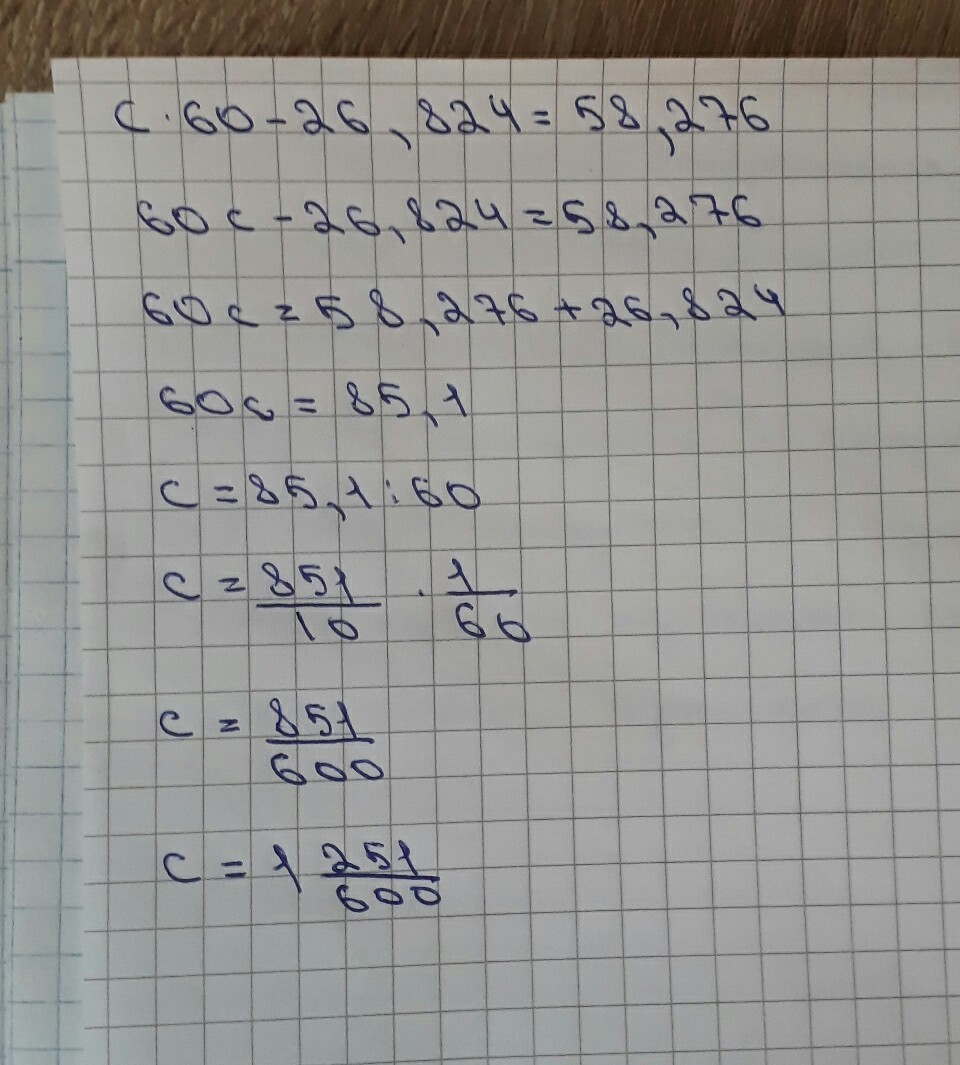 c · 60 - 26,824 = 58,276
60c - 26,824 = 58,276
60c = 58,276 + 26,824
60c = 85,1
c = 85,1 : 60
c = 851/10 · 1/60
c = 851/600
c = 1 251/600